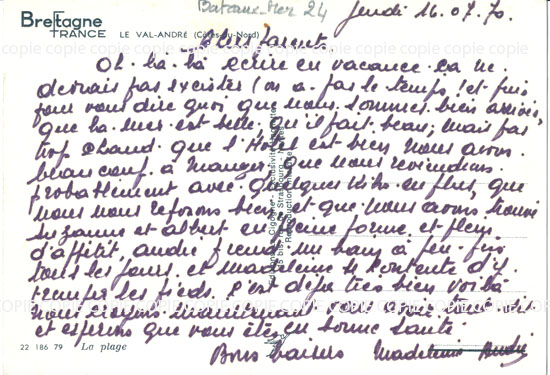 Bateaux-Mer 24
Jeudi 16.07.70.
Bretagne
FRANCE LE VAL-ANDRÉ (Côtes-du-Nord)
Chers Parents
Oh la la écrire en vacance ça ne
devrais pas exister (on a pas le temps) et puis
pour vous dire quoi que nous sommes bien arrivés,
que la mer est belle, qu'il fait beau, mais pas
trop chaud que l'Hotel est bien nous avons
beaucoup à manger, que nous reviendrons
probablement avec quelques kilos en plus, que
nous nous reposons bien et que nous avons trouvé
Suzanne et Albert en pleine forme et plein
d'appétit, andré prend un bain à peu près
tous les jours et madeleine se contente d'y
tremper les pieds c'est déjà très bien voilà
nous maintenant vous
et espérons que vous êtes en bonne santé
Bons baisers Madeleine André
22 186 79 La plage
COPIE COPIE COPIE COPIE COPIE COPIE